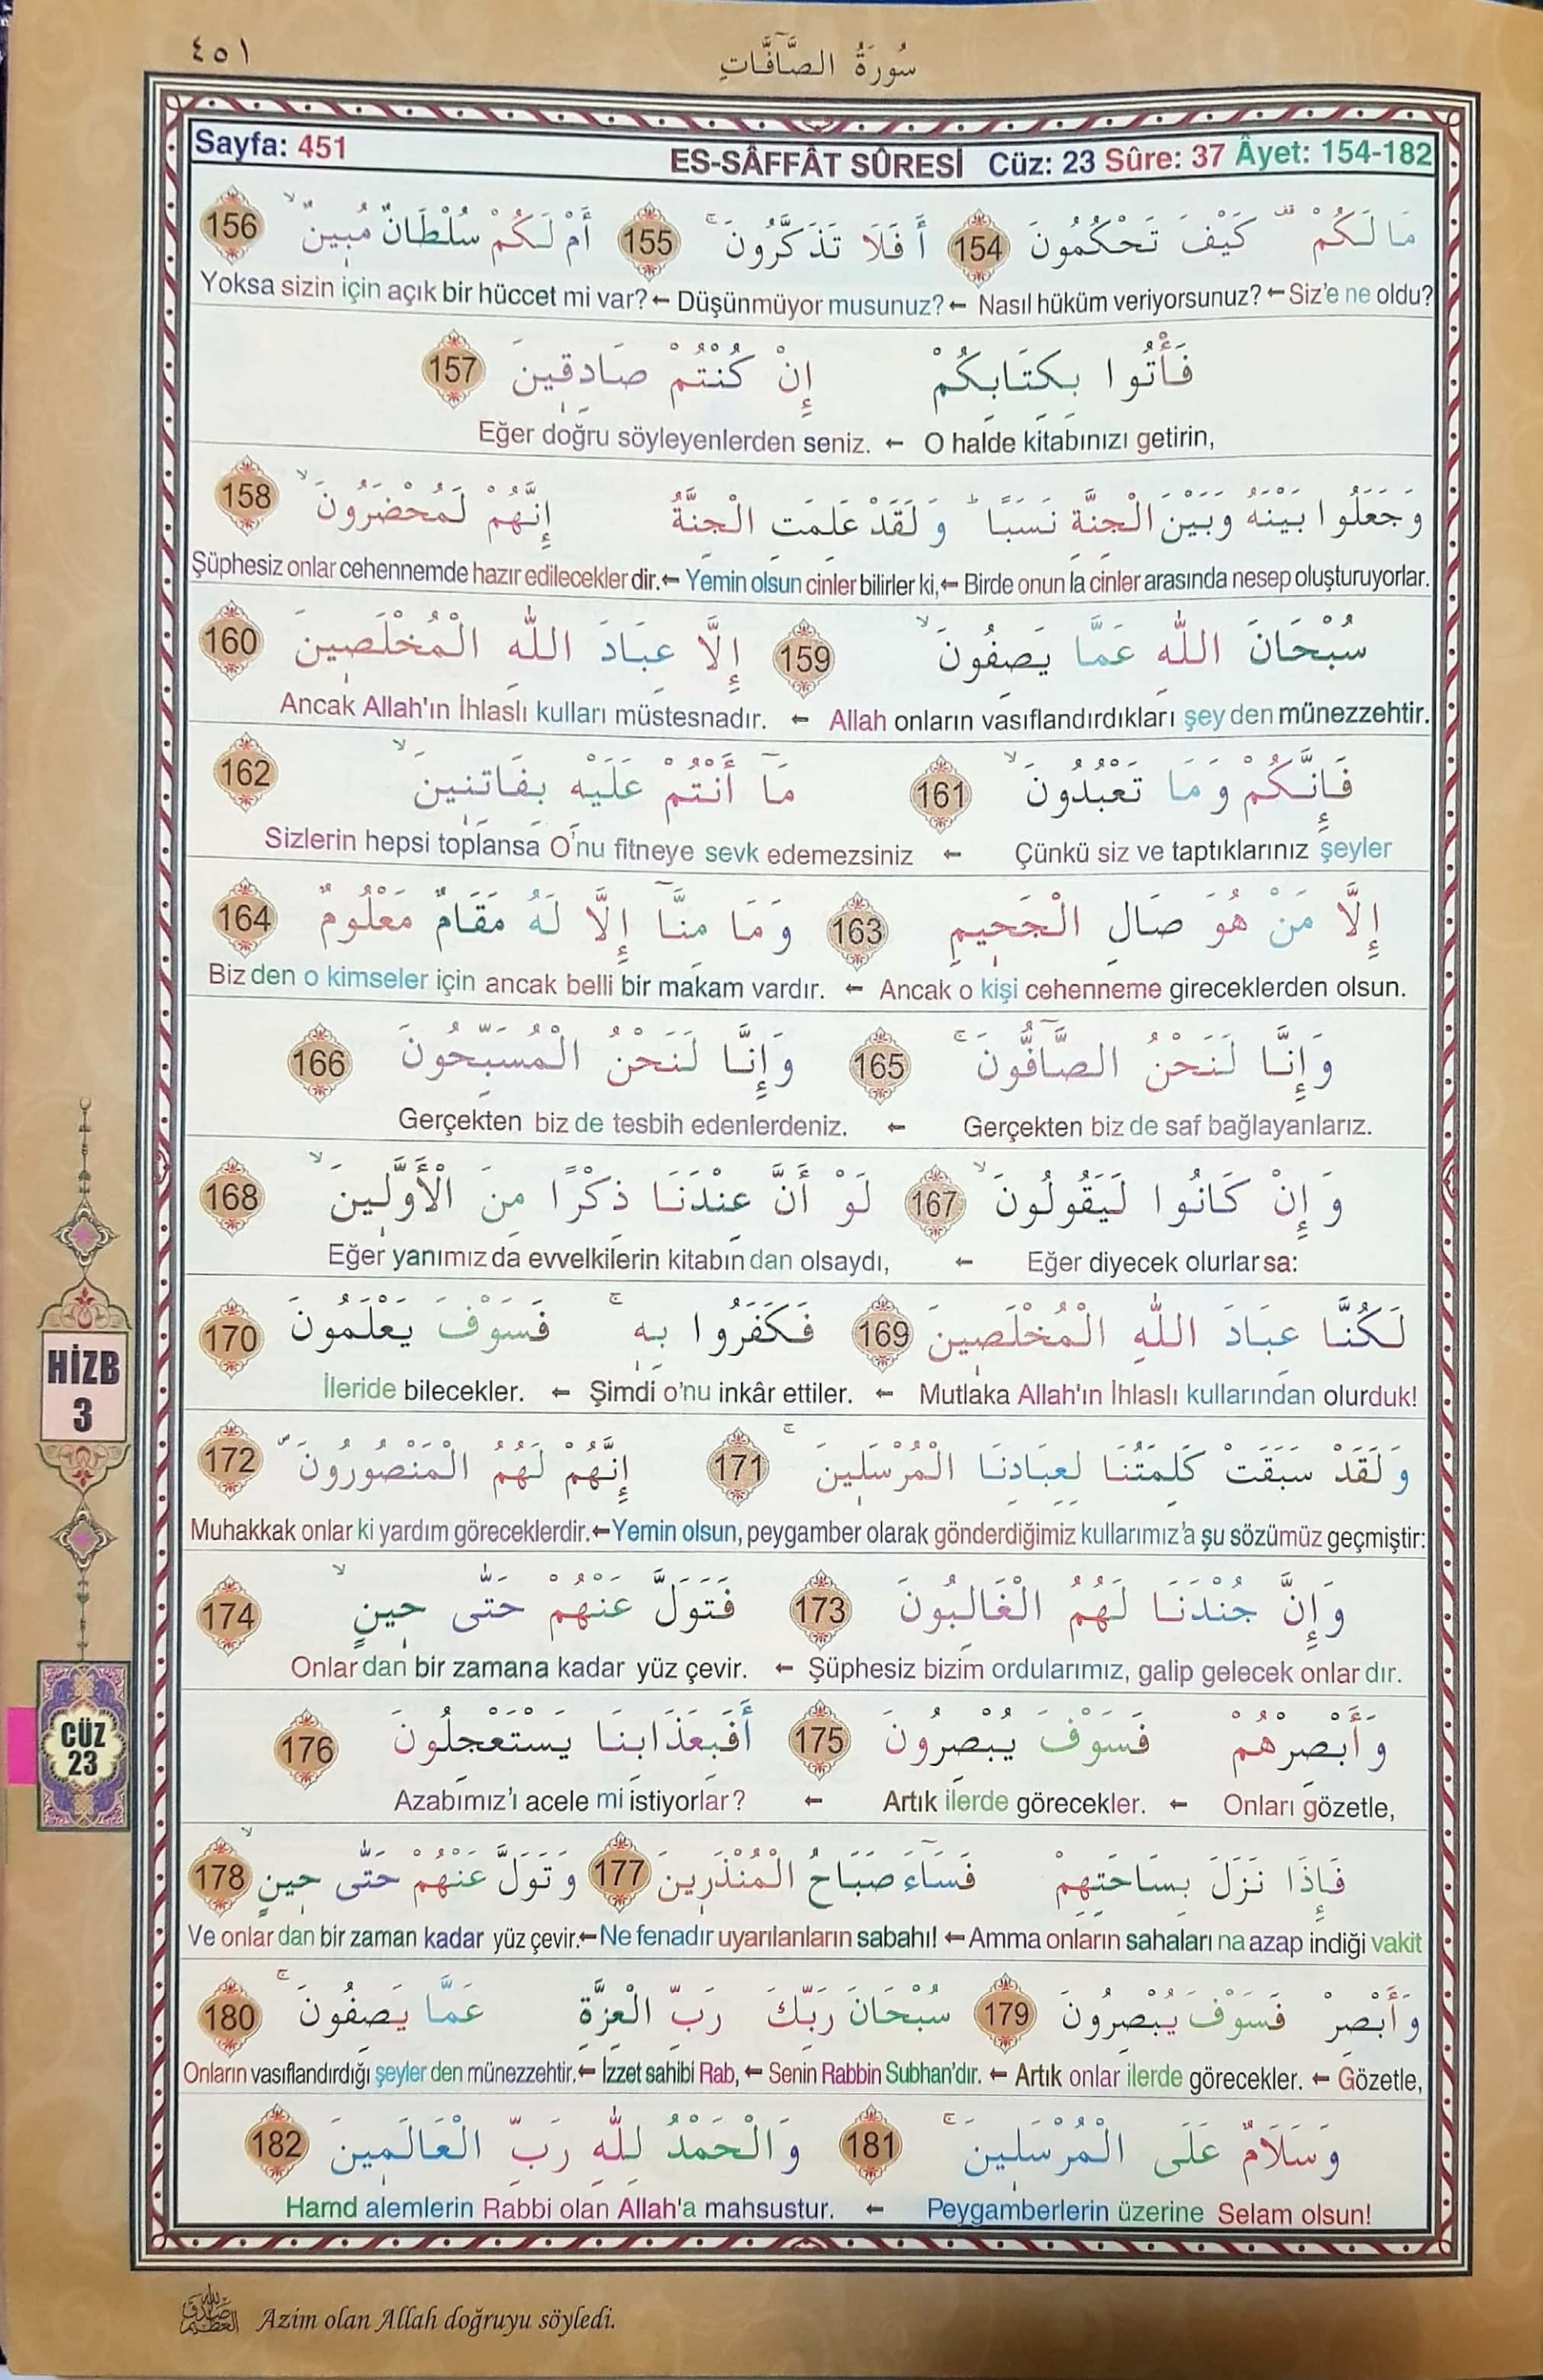 ٤٥١
سُورَةُ الصَّٓافَّاتِ
Sayfa: 451 ES-SÂFFÂT SÛRESİ Cüz: 23 Sûre: 37 Âyet: 154-182
مَا لَكُمْ كَيْفَ تَحْكُمُونَ 154 أَفَلَا تَذَكَّرُونَ 155 أَمْ لَكُمْ سُلْطَانٌ مُبِينٌ 156
Yoksa sizin için açık bir hüccet mi var?← Düşünmüyor musunuz?← Nasıl hüküm veriyorsunuz?←Siz'e ne oldu?
فَأْتُوا بِكِتَابِكُمْ إِنْ كُنْتُمْ صَادِقِينَ 157
Eğer doğru söyleyenlerden seniz. ← O halde kitabınızı getirin,
وَجَعَلُوا بَيْنَهُ وَبَيْنَ الْجِنَّةِ نَسَبًا وَلَقَدْ عَلِمَتِ الْجِنَّةُ إِنَّهُمْ لَمُحْضَرُونَ 158
Şüphesiz onlar cehennemde hazır edilecekler dir.← Yemin olsun cinler bilirler ki,← Birde onun la cinler arasında nesep oluşturuyorlar.
سُبْحَانَ اللّٰهِ عَمَّا يَصِفُونَ 159 إِلَّا عِبَادَ اللّٰهِ الْمُخْلَصِينَ 160
Ancak Allah'ın İhlaslı kulları müstesnadır. ← Allah onların vasıflandırdıkları şey den münezzehtir.
فَإِنَّكُمْ وَمَا تَعْبُدُونَ 161 مَٓا أَنْتُمْ عَلَيْهِ بِفَاتِنِينَ 162
Sizlerin hepsi toplansa O'nu fitneye sevk edemezsiniz ← Çünkü siz ve taptıklarınız şeyler
إِلَّا مَنْ هُوَ صَالِ الْجَحِيمِ 163 وَمَا مِنَّٓا إِلَّا لَهُ مَقَامٌ مَعْلُومٌ 164
Biz den o kimseler için ancak belli bir makam vardır. ← Ancak o kişi cehenneme gireceklerden olsun.
وَإِنَّا لَنَحْنُ الصَّٓافُّونَ 165 وَإِنَّا لَنَحْنُ الْمُسَبِّحُونَ 166
Gerçekten biz de tesbih edenlerdeniz. ← Gerçekten biz de saf bağlayanlarız.
وَإِنْ كَانُوا لَيَقُولُونَ 167 لَوْ أَنَّ عِنْدَنَا ذِكْرًا مِنَ الْأَوَّلِينَ 168
Eğer yanımız da evvelkilerin kitabın dan olsaydı, ← Eğer diyecek olurlar sa:
لَكُنَّا عِبَادَ اللّٰهِ الْمُخْلَصِينَ 169 فَكَفَرُوا بِهِ فَسَوْفَ يَعْلَمُونَ 170
İleride bilecekler. ← Şimdi o'nu inkâr ettiler. ← Mutlaka Allah'ın İhlaslı kullarından olurduk!
وَلَقَدْ سَبَقَتْ كَلِمَتُنَا لِعِبَادِنَا الْمُرْسَلِينَ 171 إِنَّهُمْ لَهُمُ الْمَنْصُورُونَ 172
Muhakkak onlar ki yardım göreceklerdir.←Yemin olsun, peygamber olarak gönderdiğimiz kullarımız'a şu sözümüz geçmiştir:
وَإِنَّ جُنْدَنَا لَهُمُ الْغَالِبُونَ 173 فَتَوَلَّ عَنْهُمْ حَتّٰى حِينٍ 174
Onlar dan bir zamana kadar yüz çevir. ← Şüphesiz bizim ordularımız, galip gelecek onlar dır.
وَأَبْصِرْهُمْ فَسَوْفَ يُبْصِرُونَ 175 أَفَبِعَذَابِنَا يَسْتَعْجِلُونَ 176
Azabımız'ı acele mi istiyorlar? ← Artık ilerde görecekler. ← Onları gözetle,
فَإِذَا نَزَلَ بِسَاحَتِهِمْ فَسَٓاءَ صَبَاحُ الْمُنْذَرِينَ 177 وَتَوَلَّ عَنْهُمْ حَتّٰى حِينٍ 178
Ve onlar dan bir zaman kadar yüz çevir.←Ne fenadır uyarılanların sabahı! ←Amma onların sahaları na azap indiği vakit
وَأَبْصِرْ فَسَوْفَ يُبْصِرُونَ 179 سُبْحَانَ رَبِّكَ رَبِّ الْعِزَّةِ عَمَّا يَصِفُونَ 180
Onların vasıflandırdığı şeyler den münezzehtir.← İzzet sahibi Rab, ← Senin Rabbin Subhan'dır. ← Artık onlar ilerde görecekler. ← Gözetle,
وَسَلَامٌ عَلَى الْمُرْسَلِينَ 181 وَالْحَمْدُ لِلّٰهِ رَبِّ الْعَالَمِينَ 182
Hamd alemlerin Rabbi olan Allah'a mahsustur. ← Peygamberlerin üzerine Selam olsun!
HİZB
3
CÜZ
23
صدق الله العظيم Azim olan Allah doğruyu söyledi.